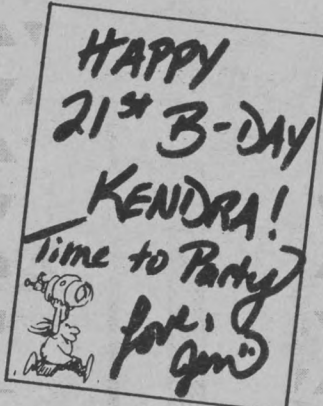 HAPPY
21st B-DAY
KENDRA!
Time to Party
Love,
Jen